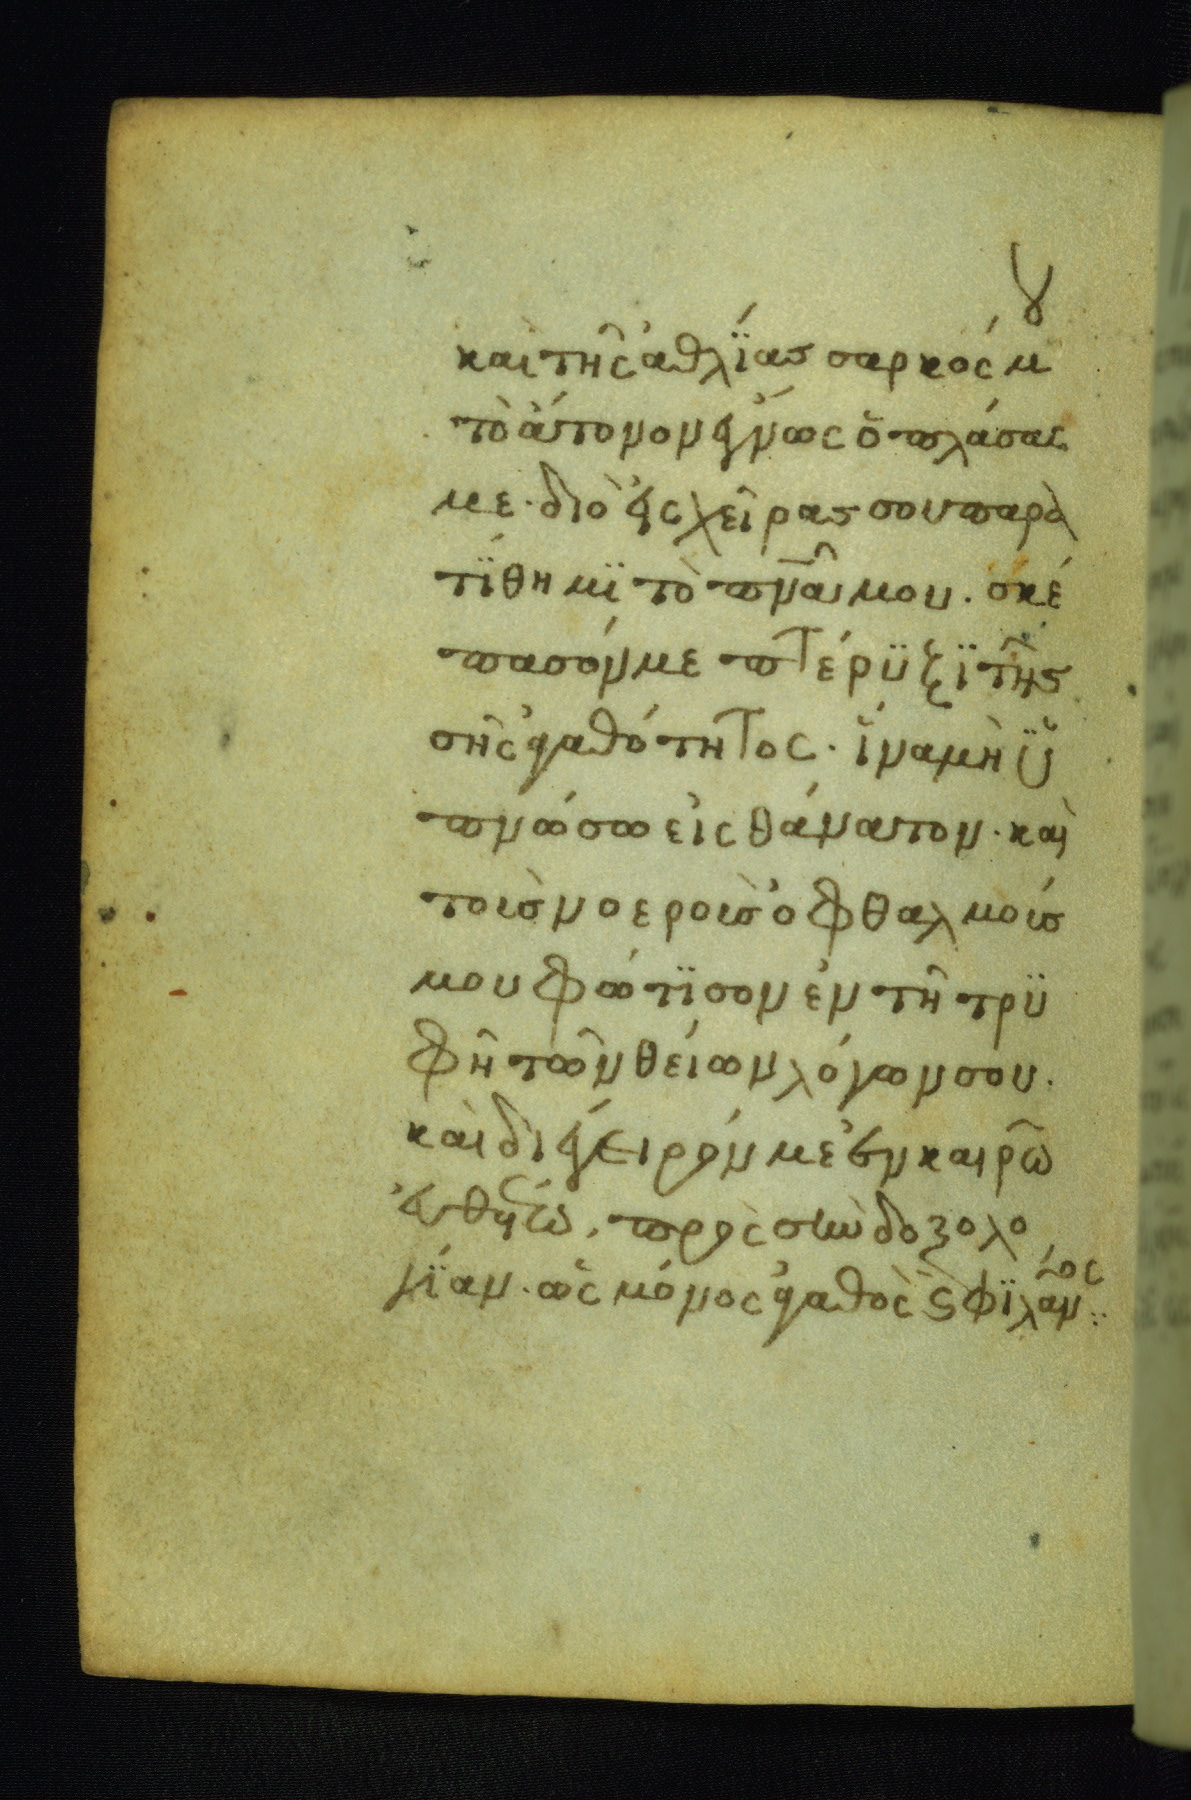 καὶ τῆς ἀθλΐας σαρκός μȣ
τὸ ἄτονον ἔγνως ὁ πλάσας
με· διὸ εἰς χεῖρας σου παρα
τΐθημϊ τὸ πν̅ᾶ μου. σκέ
πασόν με πτέρϋξϊ τῆς
σῆς ἀγαθότητος. ἵνα μὴ ὕ
πνώσω εἰς θάνατον. καὶ
τοὺς νοεροὺς ὀφθαλμούς
μου φώτϊσον ἐν τῆ τρϋ
φῆ τῶν θείων λόγων σου.
καὶ διέγειρόν με ἐν καιρῶ
εὐθέτω, πρὸς σὴν δοξολο
γΐαν. ὡς μόνος ἀγαθὸς ϗ φϊλάν̅ο̅ς :